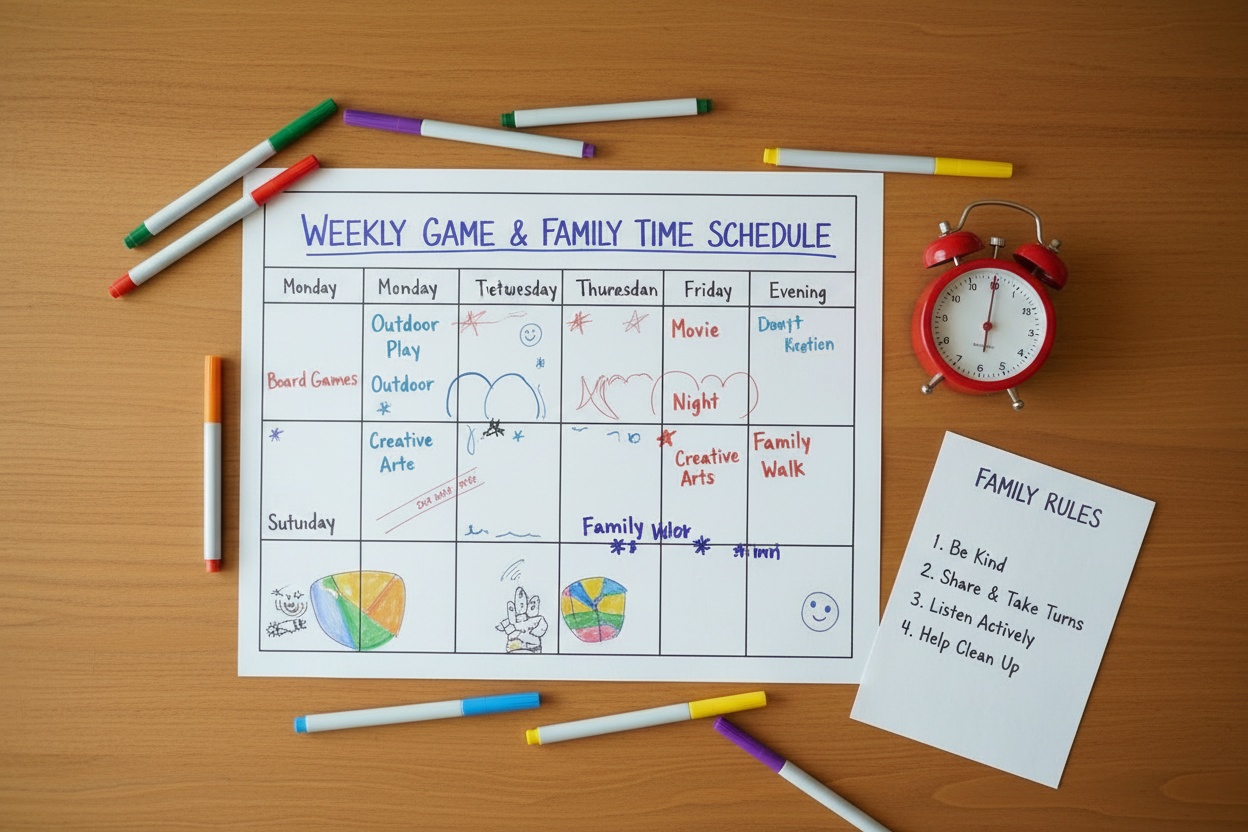 WEEKLY GAME & FAMILY TIME SCHEDULE
Monday Monday Tetwesday Thuresdan Friday Evening
Outdoor
Play
Movie
Board Games
Outdoor
Night
Creative
Arte
Creative
Arts
Family
Walk
Sutunday
Family
FAMILY RULES
1. Be Kind
2. Share & Take Turns
3. Listen Actively
4. Help Clean Up